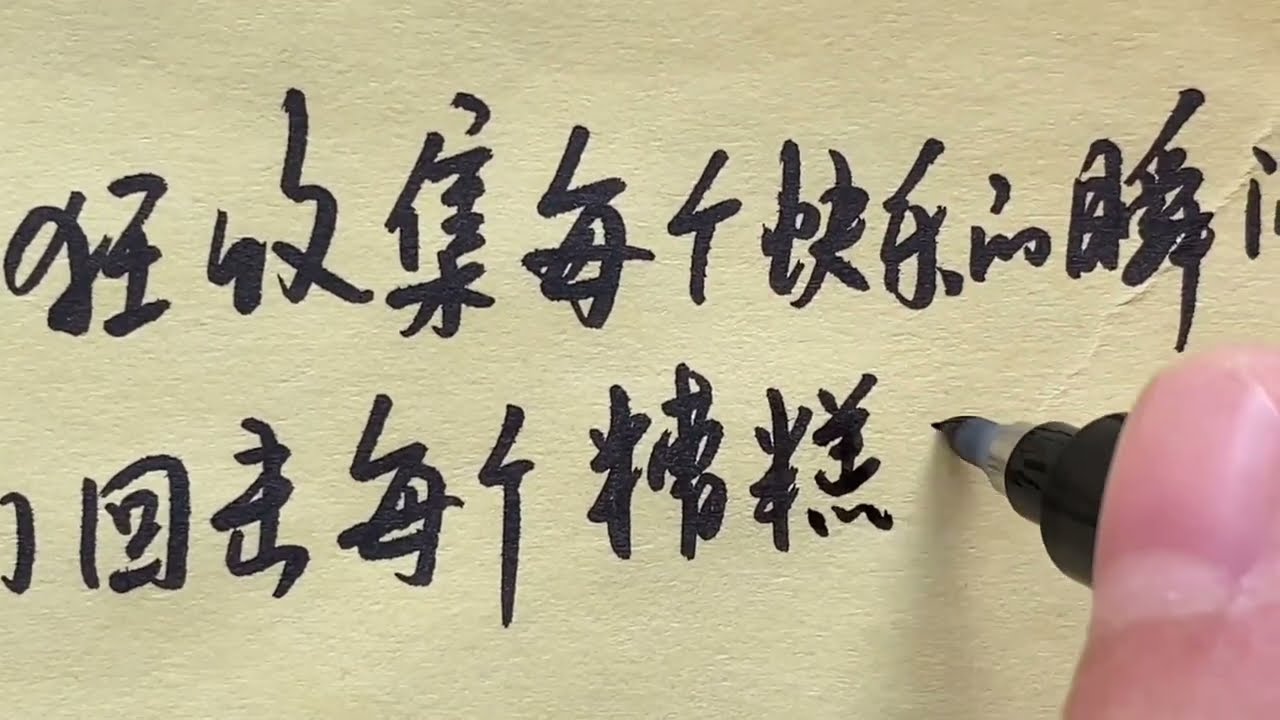 狂收集每个快乐的瞬
回击每个糟糕